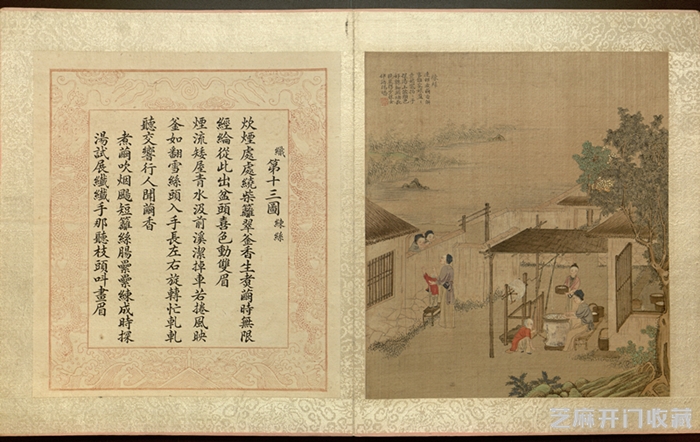 織 第十三圖 練絲
炊煙處處繞柴籬翠釜香生煑繭時無限
經綸從此出盆頭喜色動雙眉
煙流矮屋青水汲前溪潔掉車若捲風映
釜如翻雪絲頭入手長左右旋轉忙軋軋
聽交響行人聞繭香
煮繭吹烟颺短籬絲腸縈縈練成時探
湯試展纖纖手那聽枝頭叫畫眉
芝麻开门收藏